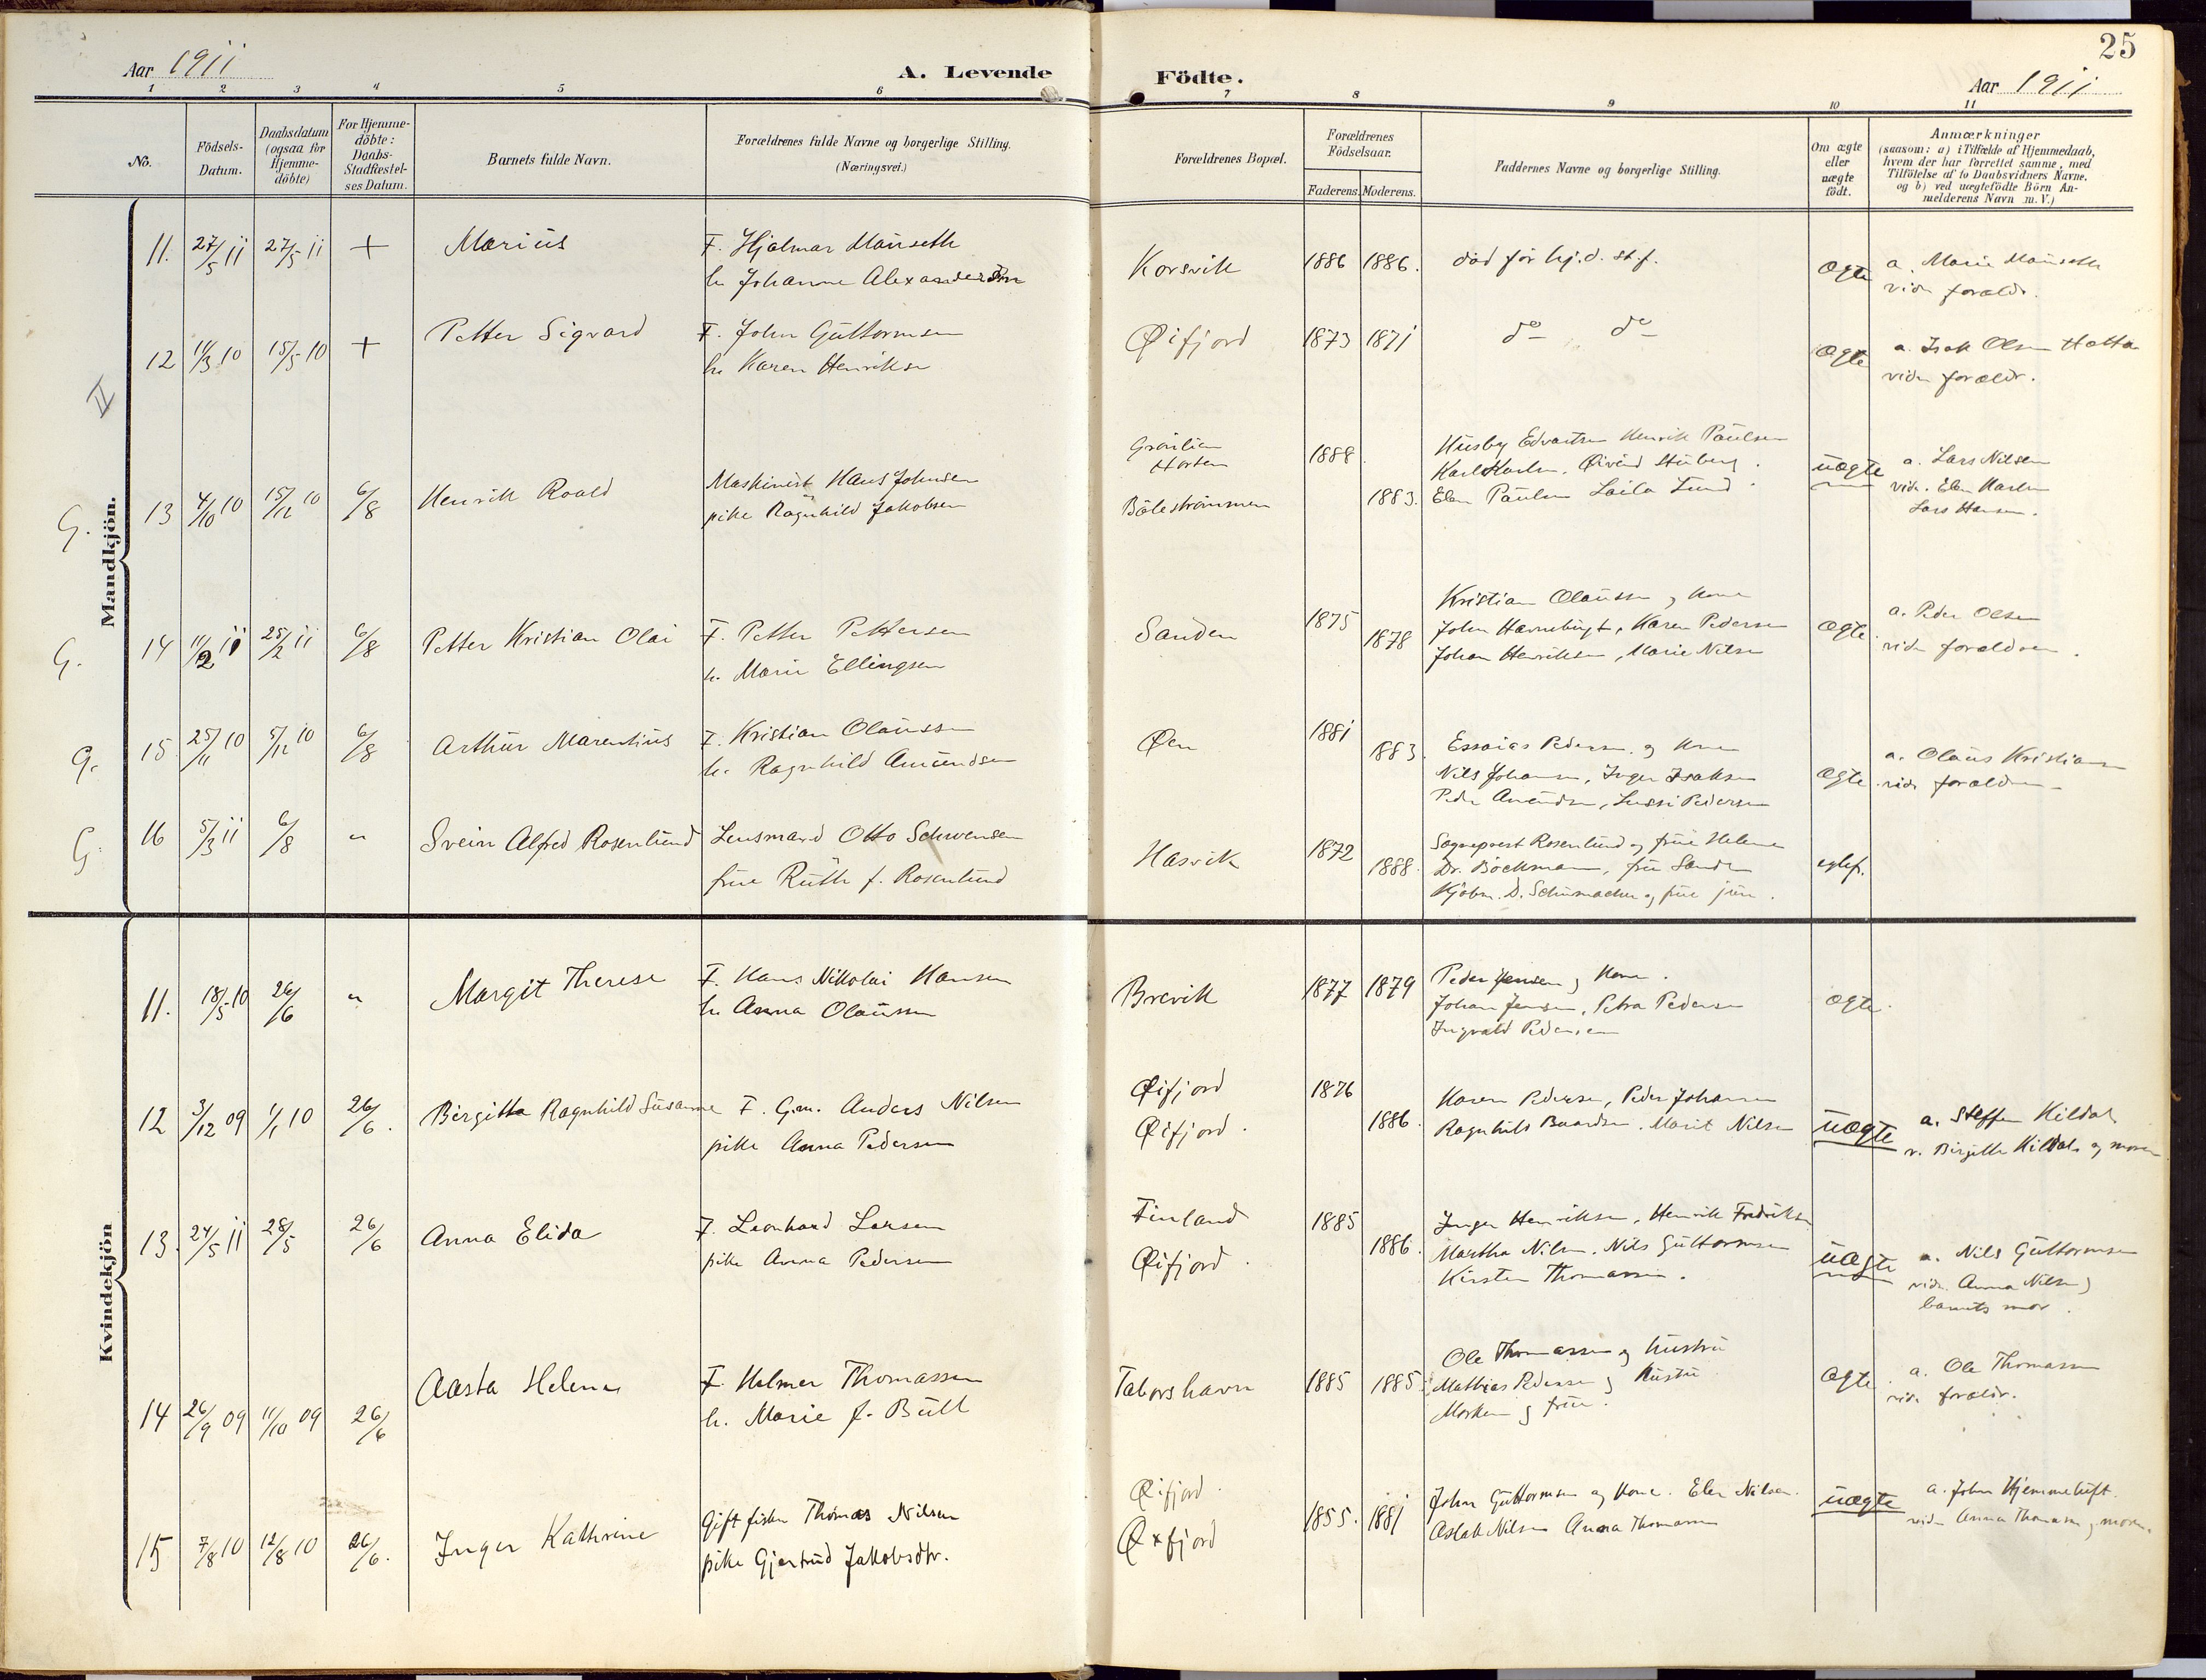 25
Aar 1911
A. Levende Födte.
Aar 1911
1 2 3 4 5 6 7 8 9 10 11
No.
Födsels-Datum.
Daabsdatum (ogsaa for Hjemme-döbte)
For Hjemme-döbte: Daabs-Stadfæstel-ses Datum.
Barnets fulde Navn.
Forældrenes fulde Navne og borgerlige Stilling. (Næringsvei.)
Forældrenes Bopæl.
Forældrenes Födselsaar.
Faderens. Moderens.
Faddernes Navne og borgerlige Stilling.
Om ægte eller uægte födt.
Anmærkninger
(saasom: a) i Tilfælde af Hjemmedaab,
hvem der har forrettet samme, med
Tilföielse af to Daabsvidners Navne.
og b) ved uægtefödte Börn An-
melderens Navn m. V.)
Mandkjön.
11. 27/5 11 27/5 11 + Marius F. Hjalmar Mauseth Korsvik 1886 1886. död för hj.d. st.f. Ægte a. Marie Mauseth
h. Johanne Alexandersen vidn foreldr.
12 11/3 10 15/5 10 + Petter Sigvard F. John Guttormsen Øifjord 1873 1871 do do Ægte a. Isak Olsen Hatta
h. Karen Henriksen vidn foreldr.
G. 13 4/10 10 15/12 10 6/8 Henrik Roald Maskinist Hans Johnsen Horten 1888 Husby Edvartsen Henrik Paulsen uægte a. Lars Nilsen
pike Ragnhild Jakobsen Båtestrømmen 1883. Karl Karlsen. Øivind
Elen Paulsen Laila Lund. Lars Hansen.
G. 14 11/2 11 25/2 11 6/8 Petter Kristian Olai F. Petter Pettersen Sanden 1875 1878 Kristian Olaussen og kone Ægte. a. Peder Olsen
h. Marie Ellingsen John, Karen Pedersen vidn foreldren.
Johan Henriksen, Marie Nilsen
G. 15 25/11 10 5/12 10 6/8 Arthur Marentius F. Kristian Olaussen Øen 1881 1883. Essaias Pedersen og kone Ægte a. Olaus Kristiansen
h. Ragnhild Amundsen Nils Johansen, Inger Isaksen vidn foreldrene
Peder Amundsen, Lussi Pedersen
G. 16 5/3 11 6/8 " Svein Alfred Rosenlund Lensmand Otto Schwensen Hasvik 1872 1888. Sogneprest Rosenlund og frue Helene egtef.
frue Ruth f. Rosenlund Dr. Böckmann, fru
Kjöbm. D. Schumacher og frue jun.
Kvindekjön
11. 18/5 10 26/6 " Margit Therese F. Hans Nikolai Hansen Brevik 1877 1879 Peder Jensen og kone. Ægte.
h. Anna Olaussen Johan Jensen, Petra Pedersen
Ingvald Pedersen
12 3/12 09 1/1 10 26/6. Birgitta Ragnhild Susanne F. G.m. Anders Nilsen Øifjord 1876 Karen Pedersen, Peder Johansen uægte a. Steffen Kildal
pike Anna Pedersen Øifjord. 1886. Ragnhild Baardsen. Marit Nilsen v. Birgitte Kildal og moren
13. 24/5 11 28/5 26/6 Anna Elida F. Leonhard Larsen Finland 1885 Inger Henriksen, Henrik Fredriksen uægte a. Nils Guttormsen
pike Anna Pedersen Øifjord. 1886. Martha Nilsen. Nils Guttormsen vidn. Anna Nilsen og
Kirsten Thomassen. barnets mor.
14 26/9 09 11/10 09 26/6 Aasta Helena F. Helmer Thomassen Taborshavn 1885 1885 Ole Thomassen og hustru Ægte. a. Ole Thomassen
h. Marie f. Bull Mathias Pedersen og hustru vidn foreldr.
og frue.
15 7/8 10 12/8 10 26/6. Inger Kathrine Gift fisker Thomas Nilsen Øifjord. 1855. 1881 John Guttormsen og kone. Elen Nilsen. uægte a. John Hjemmeluft
pike Gjertrud Jakobsdtr. Øxfjord Aslak Nilsen Anna Thomassen vidn Anna Thomassen og moren.